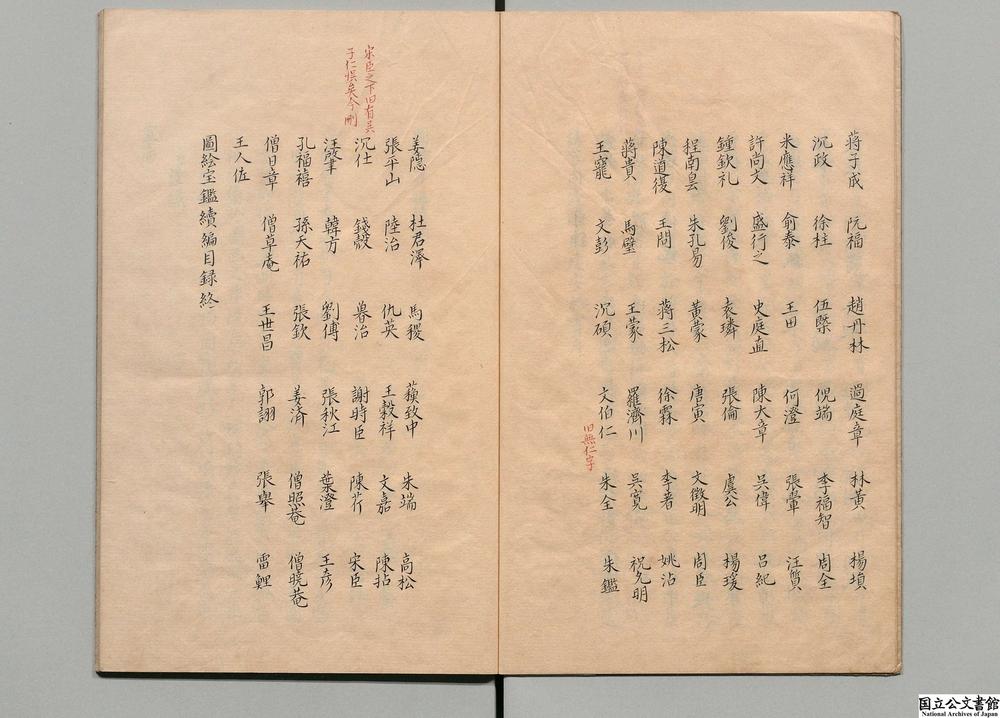 蔣子成　阮福　趙丹林　過庭章　林黃　楊塤
沉政　徐柱　伍㮣　倪端　李福智　周全
米應祥　俞泰　王田　何澄　張翬　汪質
許尚文　盛行之　史庭直　陳大章　吳偉　呂紀
鐘欽礼　劉俊　袁璘　張倫　虞公　楊瑗
程南昙　朱孔易　黃蒙　唐寅　文徵明　周臣
陳道復　王問　蔣三松　徐霖　李著　姚沾
蔣貴　馬璧　王蒙　羅濟川　吳寬　祝允明
王寵　文彭　沉碩　文伯仁　朱全　朱鑑
旧無仁字
宋臣之下旧有吴
子仁悞矣今刪
姜隠　杜君澤　馬稷　蘋致中　朱端　高松
張平山　陸治　仇英　王榖祥　文嘉　陳拈
沉仕　錢殻　暮治　謝時臣　陳芹　宋臣
汪肇　韓方　劉傅　張秋江　葉澄　王彥
孔福禧　孫天祐　張欽　姜済　僧照菴　僧曉菴
僧日章　僧草庵　王世昌　郭詡　張舉　雷鯉
王人佐
圖絵宝鑑續編目録終
国立公文書館
National Archives of Japan